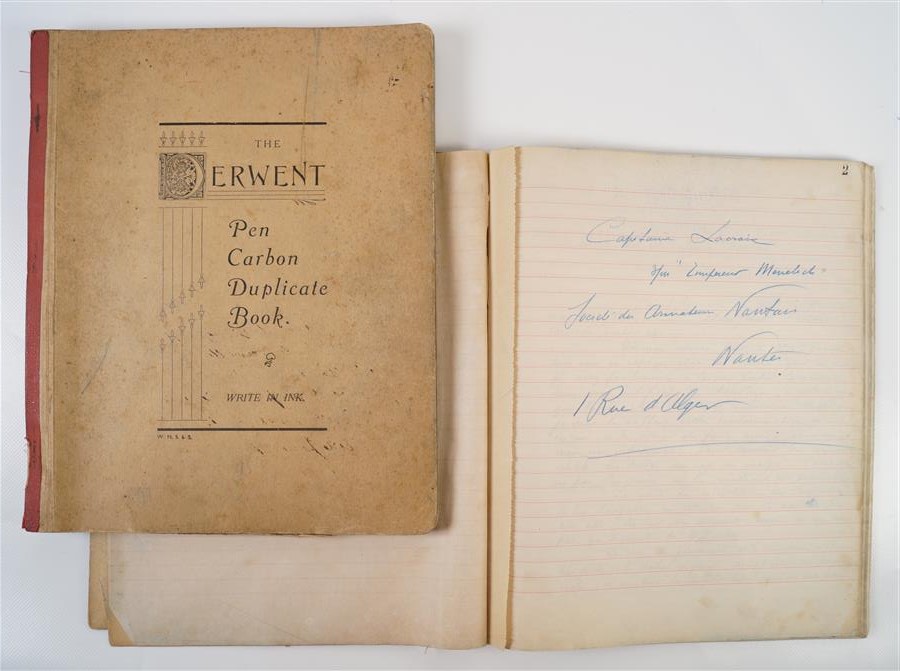 THE
DERWENT
Pen
Carbon
Duplicate
Book.
WRITE IN INK.
2
Capitaine
"Empereur Menelick"
Société des Armateurs Nantais
Nantes
1 Rue d'Alger